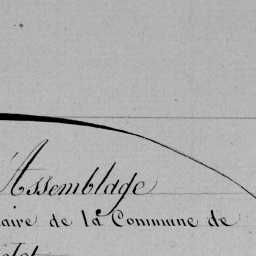 Assemblage
aire de la Commune de